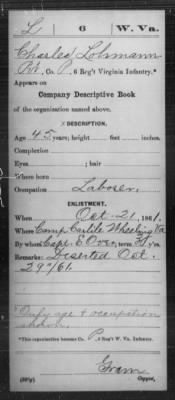 L 6 W. Va.
Charles Lohmann
Pvt, Co. P, 6 Reg't Virginia Infantry.*
Appears on
Company Descriptive Book
of the organization named above.
DESCRIPTION.
Age 45 years; height feet inches.
Complexion
Eyes ; hair
Where born
Occupation Laborer.
ENLISTMENT.
When Oct. 21, 1861.
Where Camp Carlile Wheeling Va
By whom Capt. E. Over, term 3 y'rs.
Remarks: Deserted Oct.
29th/61.
Only age & occupation
shown.
*This organization became Co. P, 6 Reg't W. Va. Infantry.
Copyist.